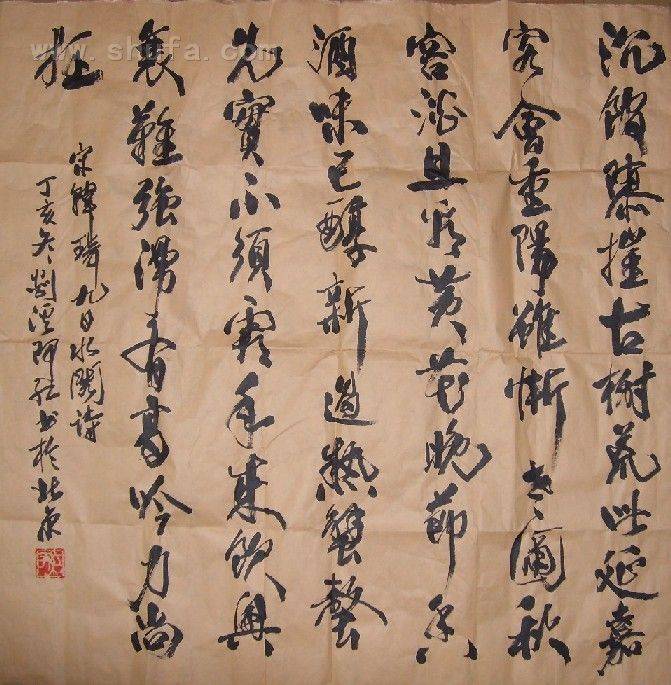 www.shufa.com
池館隳摧古榭荒此延嘉
客會重陽雖慚老圃秋
容淡且看黄花晚節香
酒味已醇新過熱蟹螯
先實不須霜年來飲興
衰難強漫有高吟力尚
狂
宋韓琦九日水閣詩
丁亥冬剡溪阿红书於北京